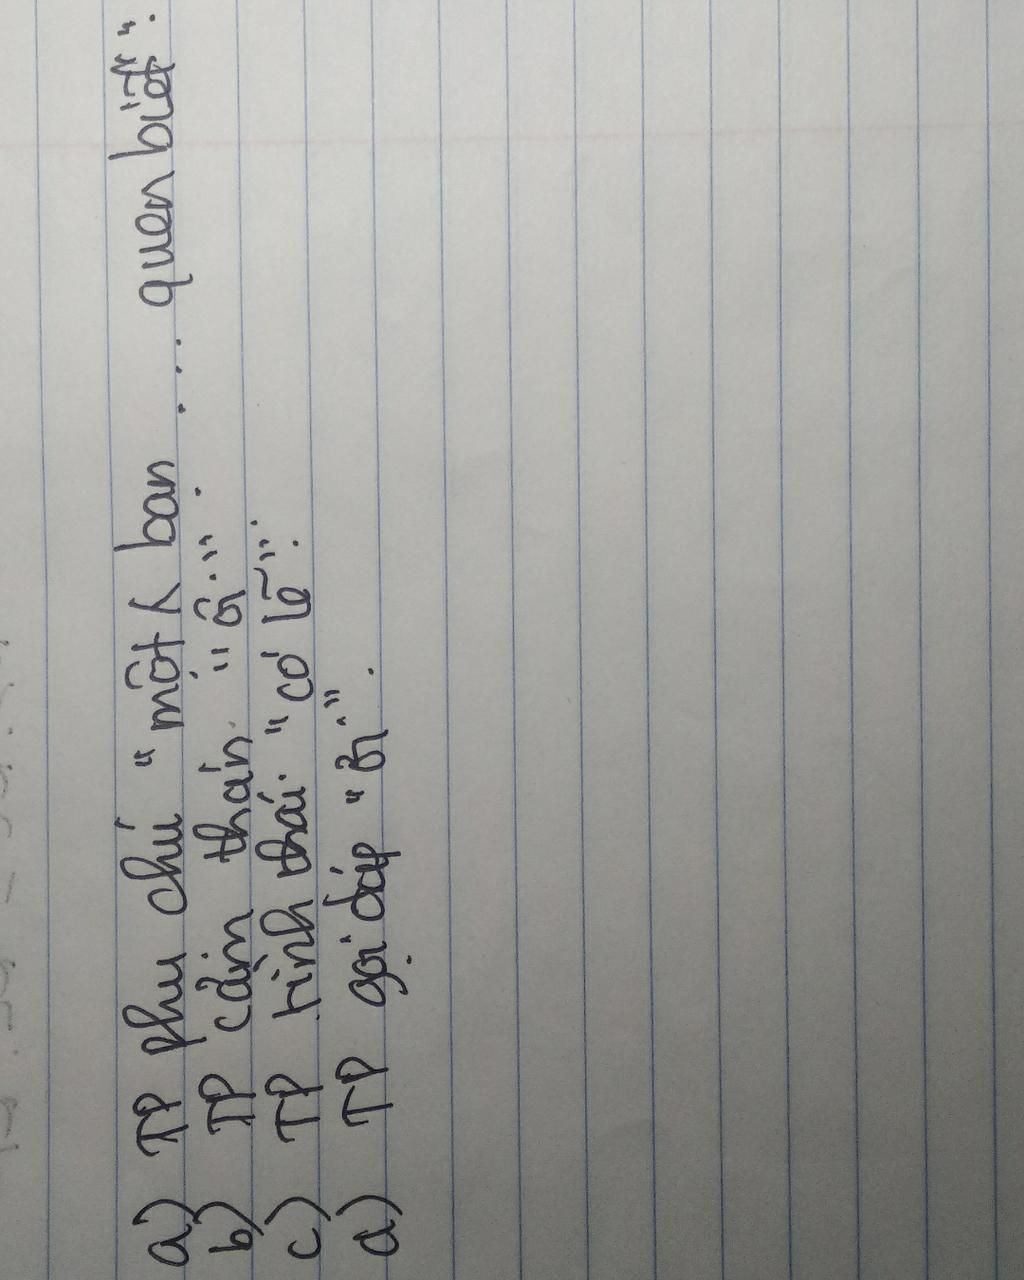 a) TP phụ chú "một ... ban .... quen biết".
b) TP cảm thán "ôi".
c) TP tình thái "có lẽ".
d) TP gọi đáp